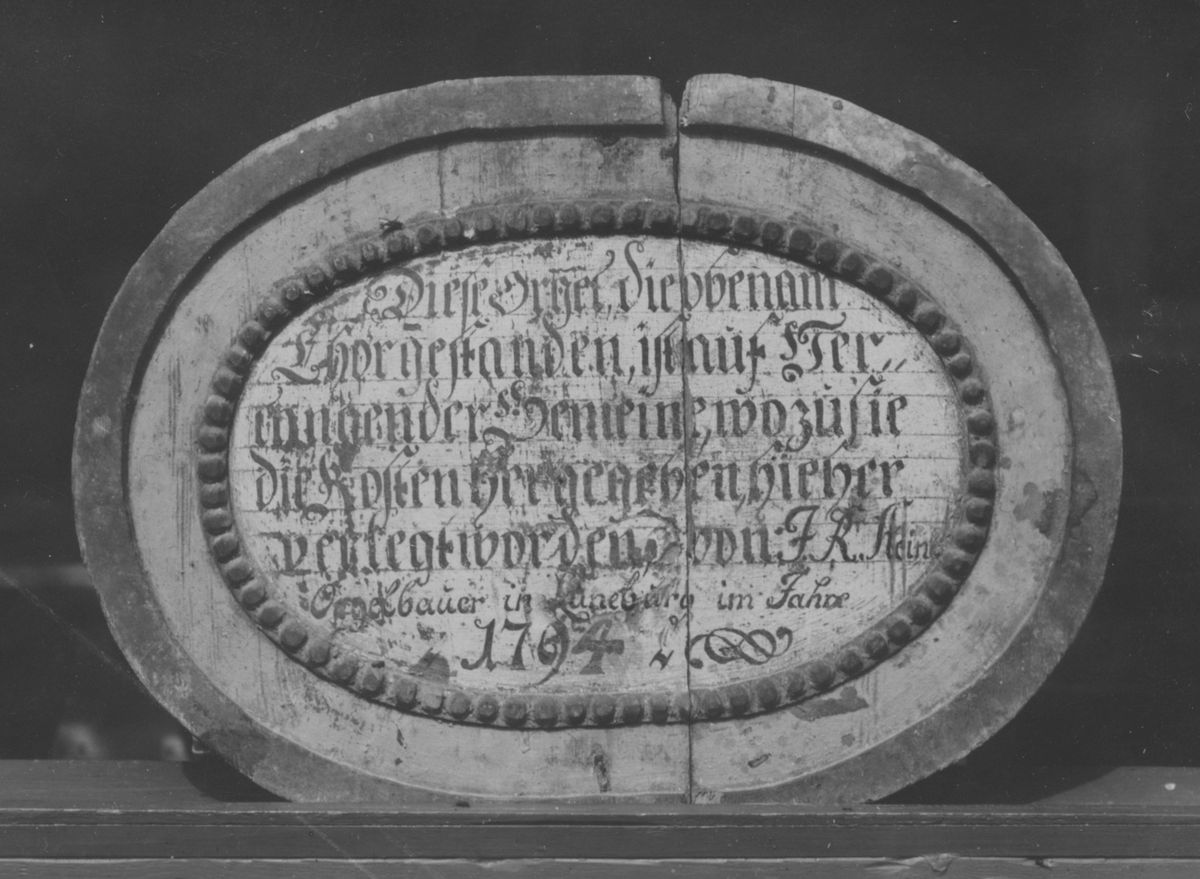 Diese Orgel, die oben am
Chor gestanden, ist auf
der Gemeine, wozu sie
die Kosten hergegeben, hieher
verlegt worden, von J. R. Stein
Orgelbauer in Lüneburg im Jahre
1794